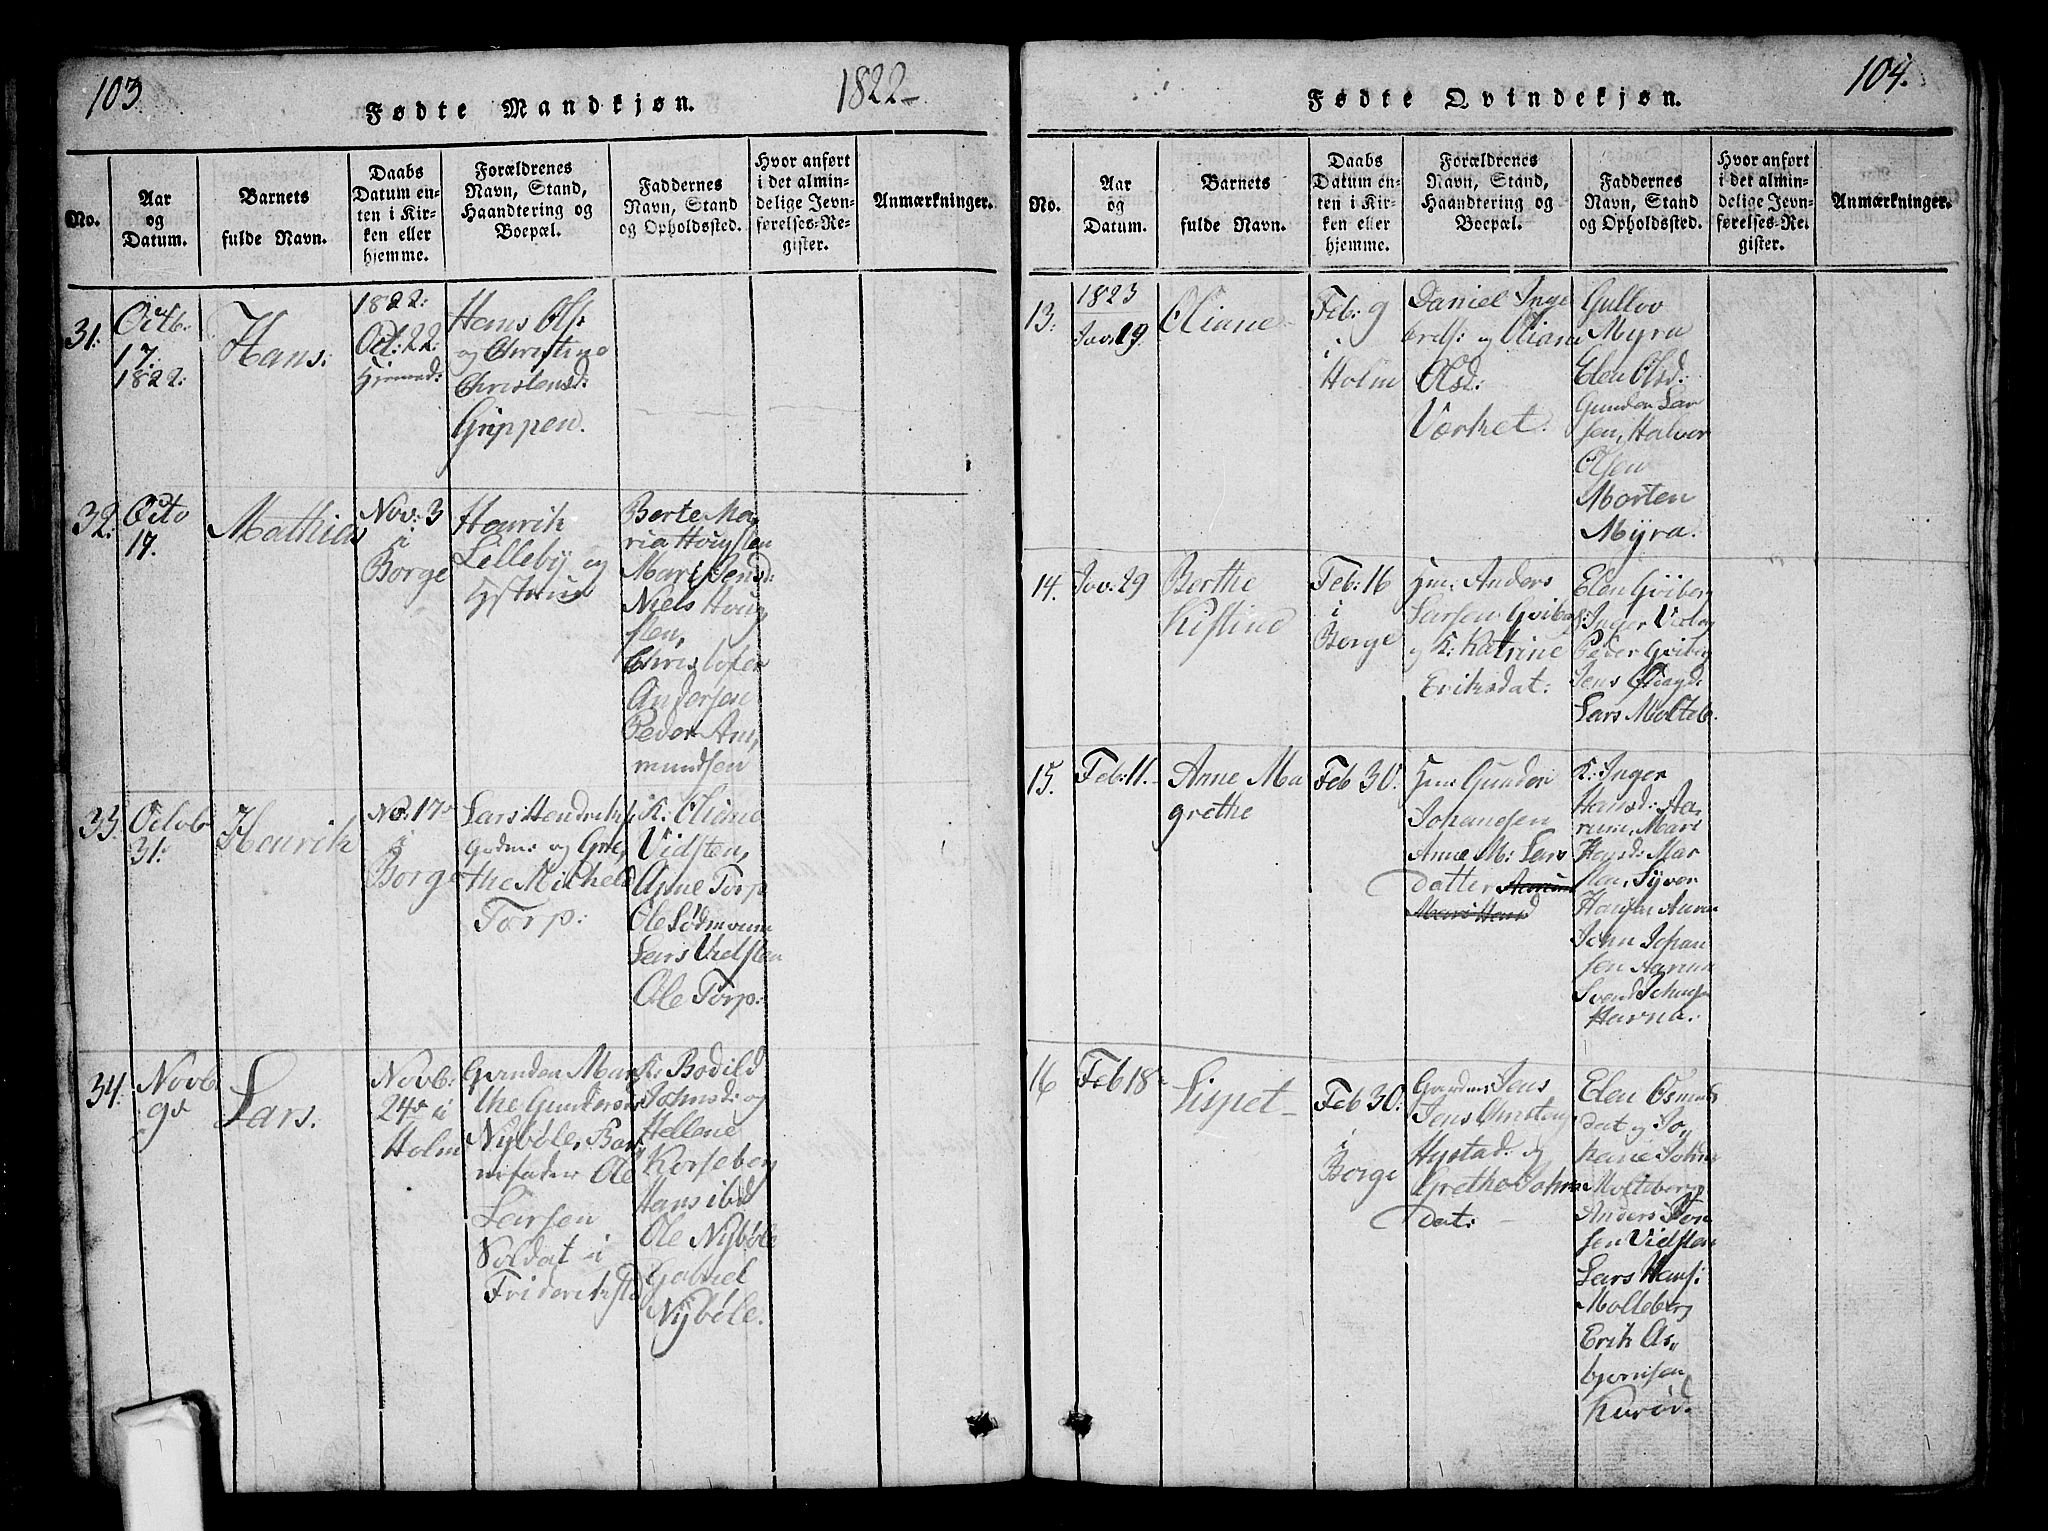 103
Fødte Mandkjøn.
1822
No.
Aar
og
Datum.
Barnets
fulde Navn.
Daabs
Datum en-
ten i Kir-
ken eller
hjemme.
Forældrenes
Navn, Stand,
Haandtering og
Boepæl.
Faddernes
Navn, Stand
og Opholdssted.
Hvor anført
i det almin-
delige Jevn-
førelses-Re-
gister.
Anmærkninger.
31:
Octb:
17:
1822:
Hans:
1822:
Oct: 22:
Hans Ols:
og Christine
Christensd:
Grippen.
32:
Octo
17.
Mathias
Nov: 3
i
Borge
Henrik
Lilleby og
Berte Ma,
ria Hougsten
Mari Jensd:
Niels Houg
sten,
Christofer
Andersen
Peder Am,
mundsen
33.
Octob
31:
Henrik
No: 17
i
Borge
Lars Hendriks
og Gre,
the Michels
Torp:
K: Oliane
Vidsten,
Anne Torp
Ole
Lars Vidsten
Ole Torp:
34:
Novb:
9
Lars.
Novb:
24 i
Holm
Gunden Mar
the Gunders
Nyböle, Bar
nefader Ole
Larsen
Soldat i
Frideriksst
K: Bodild
Johnsd: og
Hellene
Korseberg
Hans ibd
Ole Nyböle
Gabriel
Nyböle.
104.
Fødte Qvindekjøn.
No.
Aar
og
Datum.
Barnets
fulde Navn.
Daabs
Datum en-
ten i Kir-
ken eller
hjemme.
Forældrenes
Navn, Stand,
Haandtering og
Boepæl.
Faddernes
Navn, Stand
og Opholdssted.
Hvor anført
i det almin-
delige Jevn-
førelses-Re-
gister.
Anmærkninger.
13:
1823
Jav: 19.
Oliane
Feb: 9
i
Holm
Daniel Inge
brets: og Oliane
Olsd:
Værket.
Gullov
Myra
Elen Olsd:
Gunder Lar
sen, Halvor
Olsen
Morten
Myra.
14.
Jav: 29
Berthe
Kistine
Feb: 16
i
Borge
Hm: Anders
Larsen Gviberg
og K: Katrine
Eriksdat:
Elen Gviberg
Inger
Peder Gviberg
Jens
Lars Molteb.
15.
Feb: 11.
Anne Ma
grethe
Feb 30.
Hm: Gunder
Johansen
Anne M: Lars
datter
K: Inger
Hansd: Aa,
rum, Mari
Hansd: Mar
Syver
Hansen
John Johan
sen Aarum
Svend
Havna.
16
Feb 18
Lispet
Feb 30:
i
Borge
Jens
Jens Christens
Hystad: og
Grethe Johns
dat:
Elen
dat og Jo,
hane Johns
Molteberg
Anders Tor
sen Vidsten
Lars Hans:
Molteberg
Erik As,
bjørnsen
Kurød.